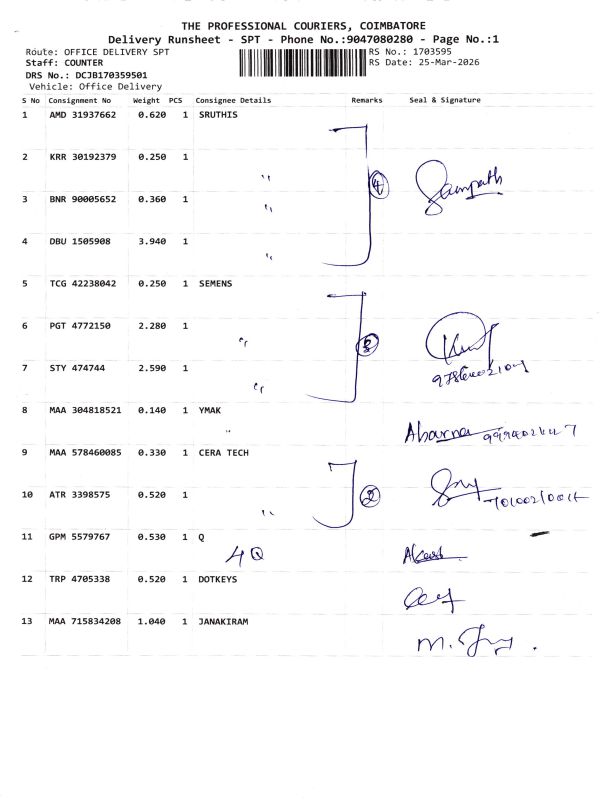 THE PROFESSIONAL COURIERS, COIMBATORE
Delivery Runsheet - SPT - Phone No.:9047080280 - Page No.:1
Route: OFFICE DELIVERY SPT RS No.: 1703595
Staff: COUNTER RS Date: 25-Mar-2026
DRS No.: DCJB170359501
Vehicle: Office Delivery
S No Consignment No Weight PCS Consignee Details Remarks Seal & Signature
1 AMD 31937662 0.620 1 SRUTHIS
2 KRR 30192379 0.250 1
" 4 Sampath
3 BNR 90005652 0.360 1
"
4 DBU 1505908 3.940 1
"
5 TCG 42238042 0.250 1 SEMENS
6 PGT 4772150 2.280 1
" 3
7 STY 474744 2.590 1
"
8 MAA 304818521 0.140 1 YMAK
"
9 MAA 578460085 0.330 1 CERA TECH
10 ATR 3398575 0.520 1 2
"
11 GPM 5579767 0.530 1 Q
4Q
12 TRP 4705338 0.520 1 DOTKEYS
13 MAA 715834208 1.040 1 JANAKIRAM
M.